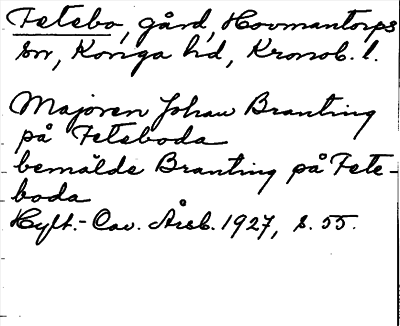 Fetebo, gård, Hovmantorps
sn, Konga hd, Kronob. l.
Majoren Johan Branting
på Feteboda
bemälde Branting på Fete-
boda
Hylt.-Cav. Årsb. 1927, s. 55.